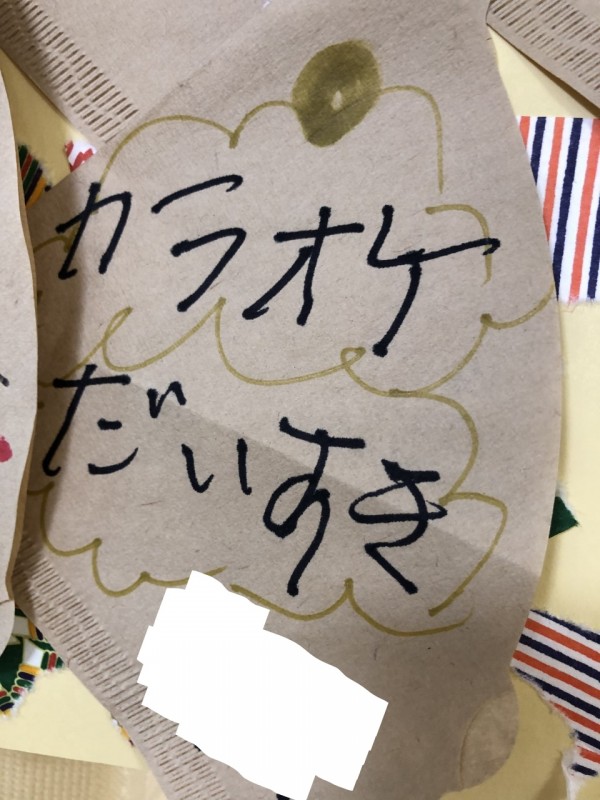 カラオケ
だいすき